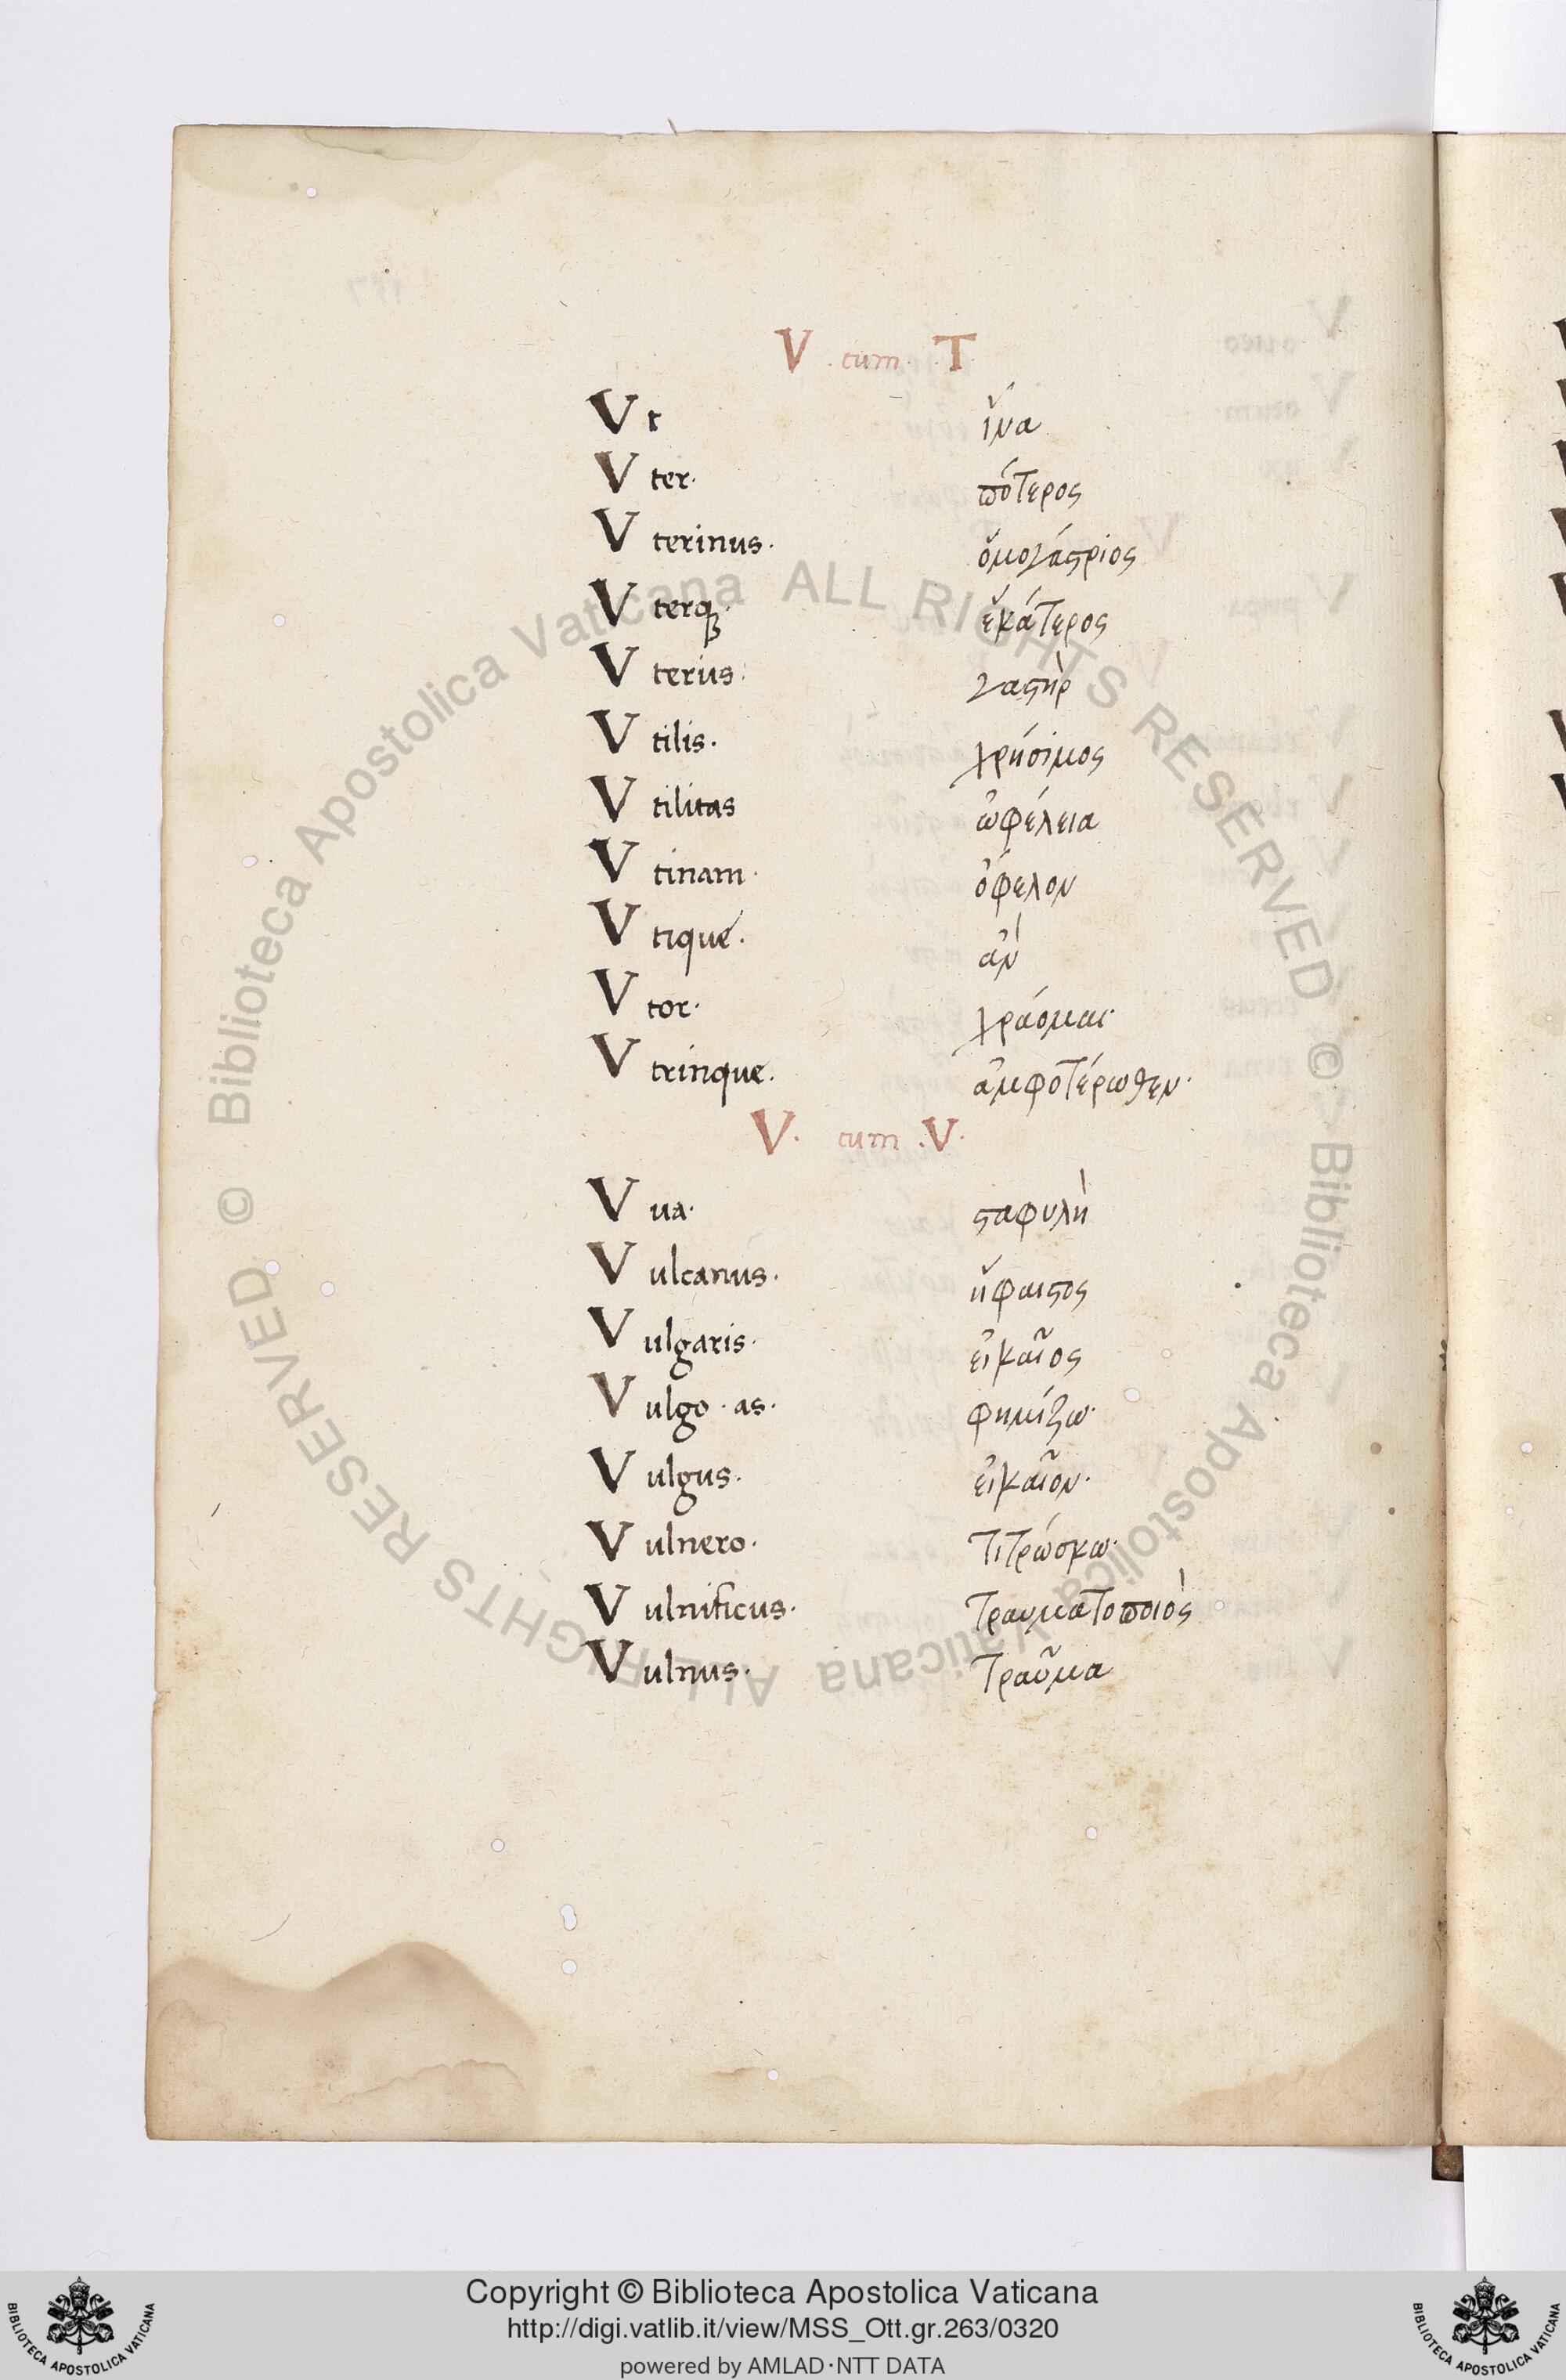 V · cum · T
V t ἵνα
V ter· πότερος
V terinus· ὁμογάστριος
V terqꝫ· ἑκάτερος
V terus· γαστὴρ
V tilis· χρήσιμος
V tilitas ὠφέλεια
V tinam· ὄφελον
V tique· ἀν
V tor· χράομαι·
V trinque· ἀμφοτέρωθεν·
V· cum ·V·
V ua· σταφυλὴ
V ulcanus· ἥφαιστος
V ulgaris· εἰκαῖος
V ulgo · as· φημίζω·
V ulgus· εἰκαῖον·
V ulnero· τιτρώσκω·
V ulnificus· τραυματοποιὸς
V ulnus· τραῦμα
© Biblioteca Apostolica Vaticana ALL RIGHTS RESERVED
© Biblioteca Apostolica Vaticana ALL RIGHTS RESERVED
Copyright © Biblioteca Apostolica Vaticana
http://digi.vatlib.it/view/MSS_Ott.gr.263/0320
powered by AMLAD·NTT DATA
BIBLIOTECA APOSTOLICA VATICANA
BIBLIOTECA APOSTOLICA VATICANA